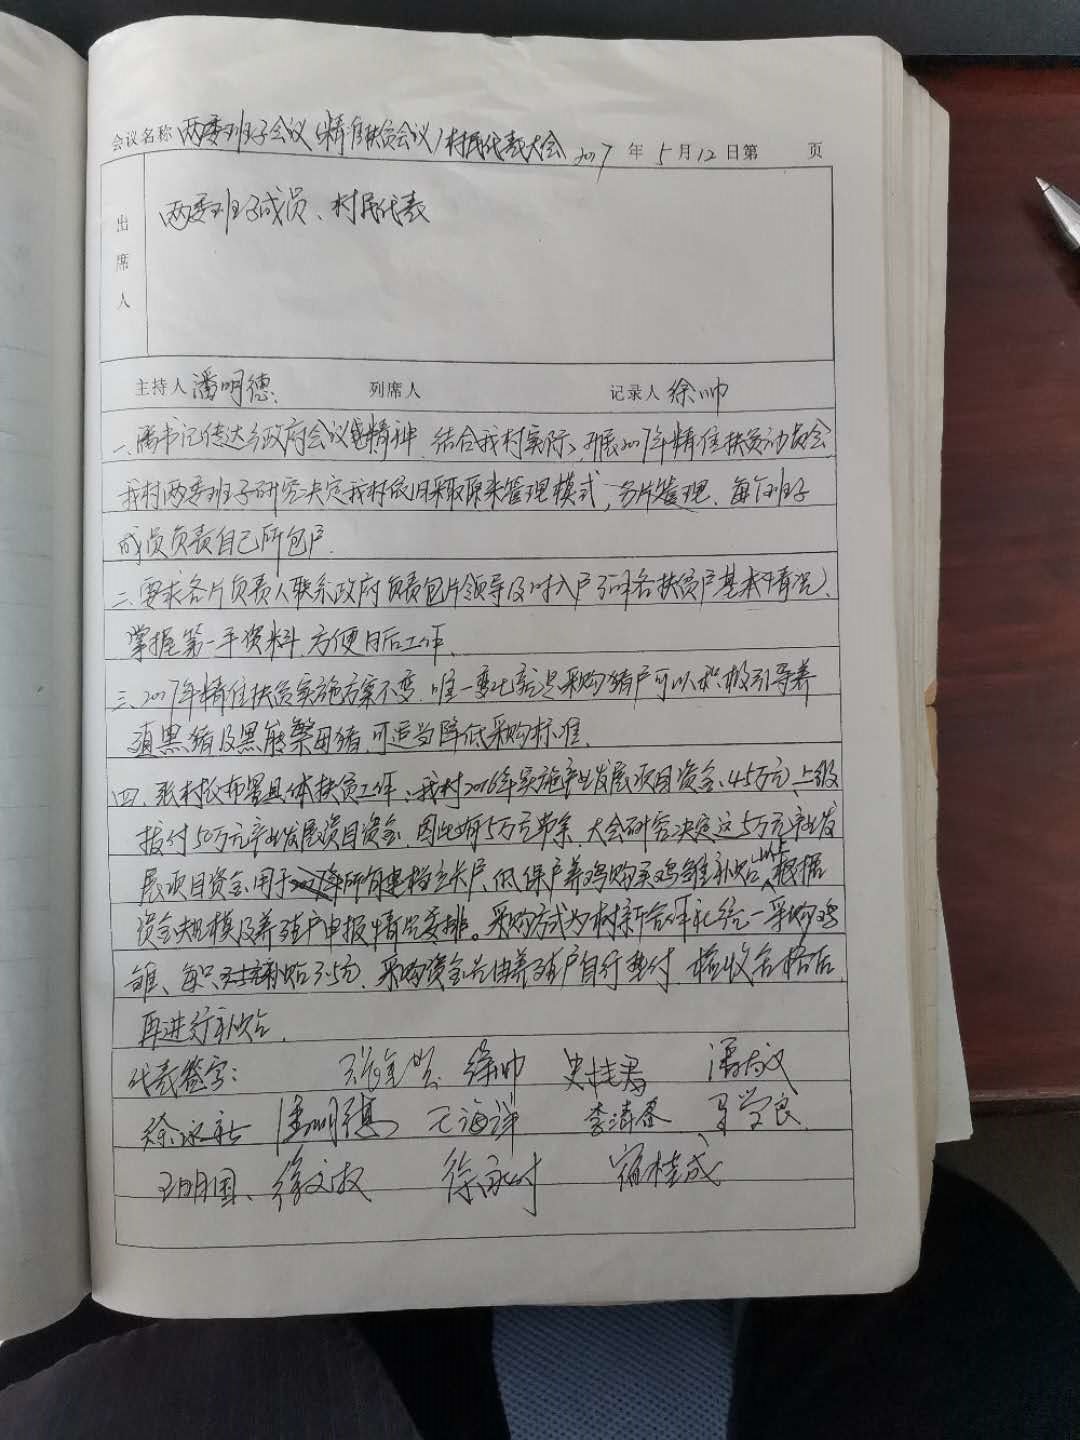 会议名称 两委班子会议(精准扶贫会议)村民代表大会 2017年5月12日第 页
出席人
两委班子成员、村民代表
主持人 潘明德 列席人 记录人 徐帅
一、潘书记传达乡政府会议精神,结合我村实际,开展2017年精准扶贫动员会
我村两委班子研究决定我村依旧采取原来管理模式,分片管理,每个班子
成员负责自己所包户
二、要求各片负责人联系政府负责包片领导及时入户 各扶贫户基本情况、
掌握第一手资料,方便日后工作。
三、2017年精准扶贫实施方案不变,唯一变化就是采购猪户可以积极引导养
殖黑猪及黑能繁母猪,可适当降低采购标准。
四、张村长布置具体扶贫工作、我村2016年实施产业发展项目资金45万元、上级
拨付50万元产业发展项目资金,因此有5万元节余,大会研究决定这5万元产业发
展项目资金用于2017年所有建档立卡户、低保户养鸡购买鸡雏补贴,根据
资金规模及养殖户申报情况安排。采购方式为村新合作社统一采购鸡
雏、每只补贴3.5元,采购资金先由养殖户自行垫付,验收合格后,
再进行补贴。
代表签字: 徐帅 史桂君 潘文
徐永 潘明德 海洋 李清春 马学良
王明国、徐文 徐永 宿桂成